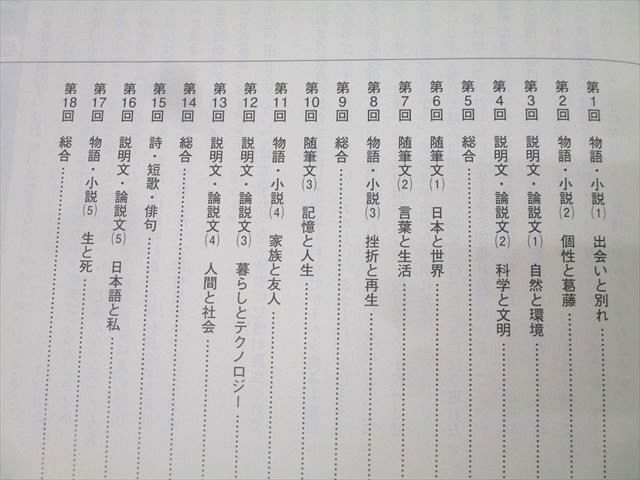 第1回 物語・小説(1) 出会いと別れ
第2回 物語・小説(2) 個性と葛藤
第3回 説明文・論説文(1) 自然と環境
第4回 説明文・論説文(2) 科学と文明
第5回 総合
第6回 随筆文(1) 日本と世界
第7回 随筆文(2) 言葉と生活
第8回 物語・小説(3) 挫折と再生
第9回 総合
第10回 随筆文(3) 記憶と人生
第11回 物語・小説(4) 家族と友人
第12回 説明文・論説文(3) 暮らしとテクノロジー
第13回 説明文・論説文(4) 人間と社会
第14回 総合
第15回 詩・短歌・俳句
第16回 説明文・論説文(5) 日本語と私
第17回 物語・小説(5) 生と死
第18回 総合